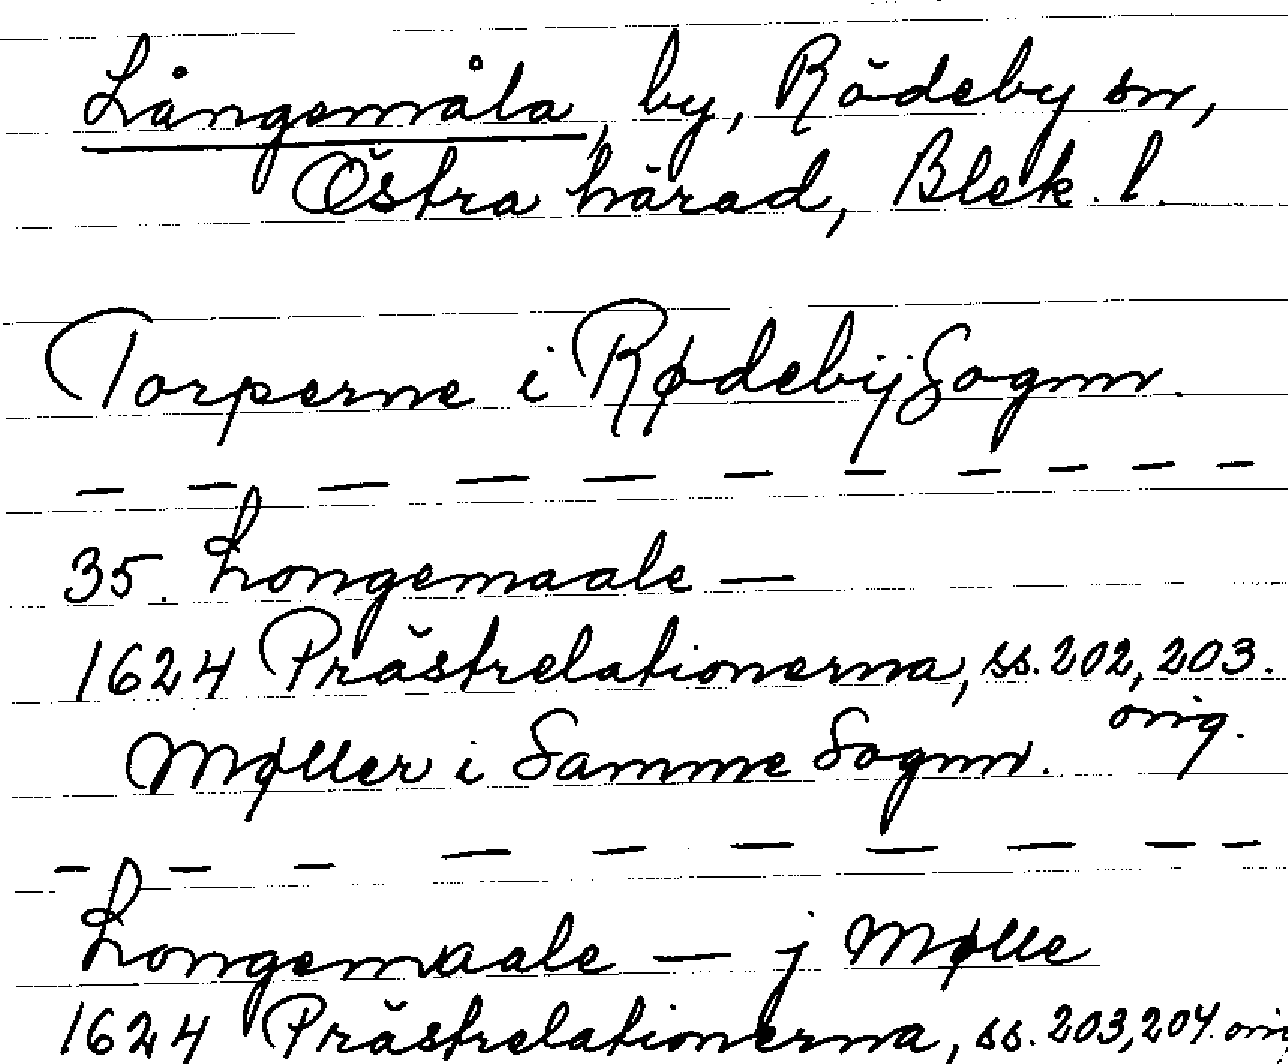 Långemåla, by, Rödeby sn,
Östra härad, Blek. l.
Torperne i Rødebij Sognn.
— — — — — — — — — —
35. Longemaale —
1624 Prästrelationerna, ss. 202, 203.
orig.
Møller i Samme Sognn.
— — — — — — — — —
Longemaale — j Mølle
1624 Prästrelationerna, ss. 203, 204. ori